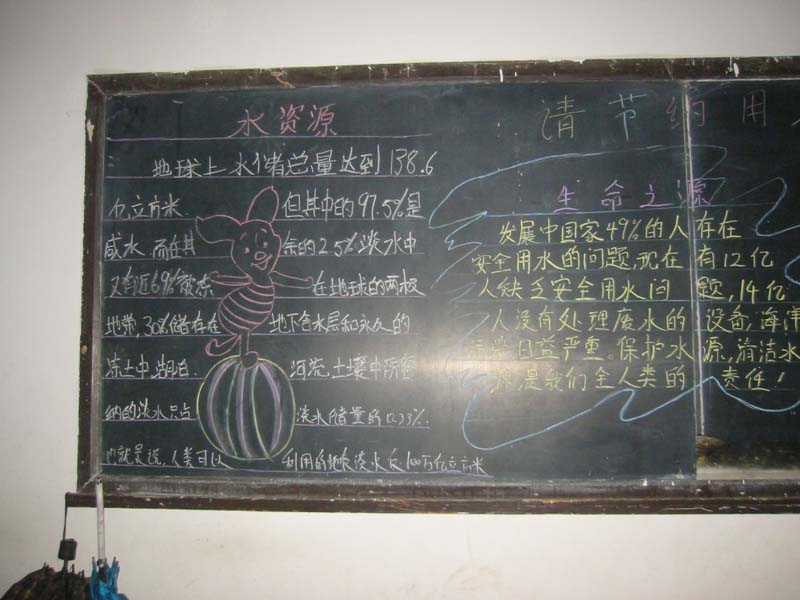 水资源
地球上水储总量达到138.6
亿立方米. 但其中的97.5%是
咸水,而在其 余的2.5%淡水中
又有近69% 在地球的两极
地带,30%储存在 地下含水层和永久的
冻土中,湖泊. 河流,土壤中所容
纳的淡水只占 淡水储量的0.33%.
也就是说,人类可以 利用的 淡水 100万亿立方米
请节约用
生命之源
发展中国家49%的人存在
安全用水的问题,现在有12亿
人缺乏安全用水问题,14亿
人没有处理废水的设备,海洋
污染日益严重。保护水源,清洁水
源,是我们全人类的责任!